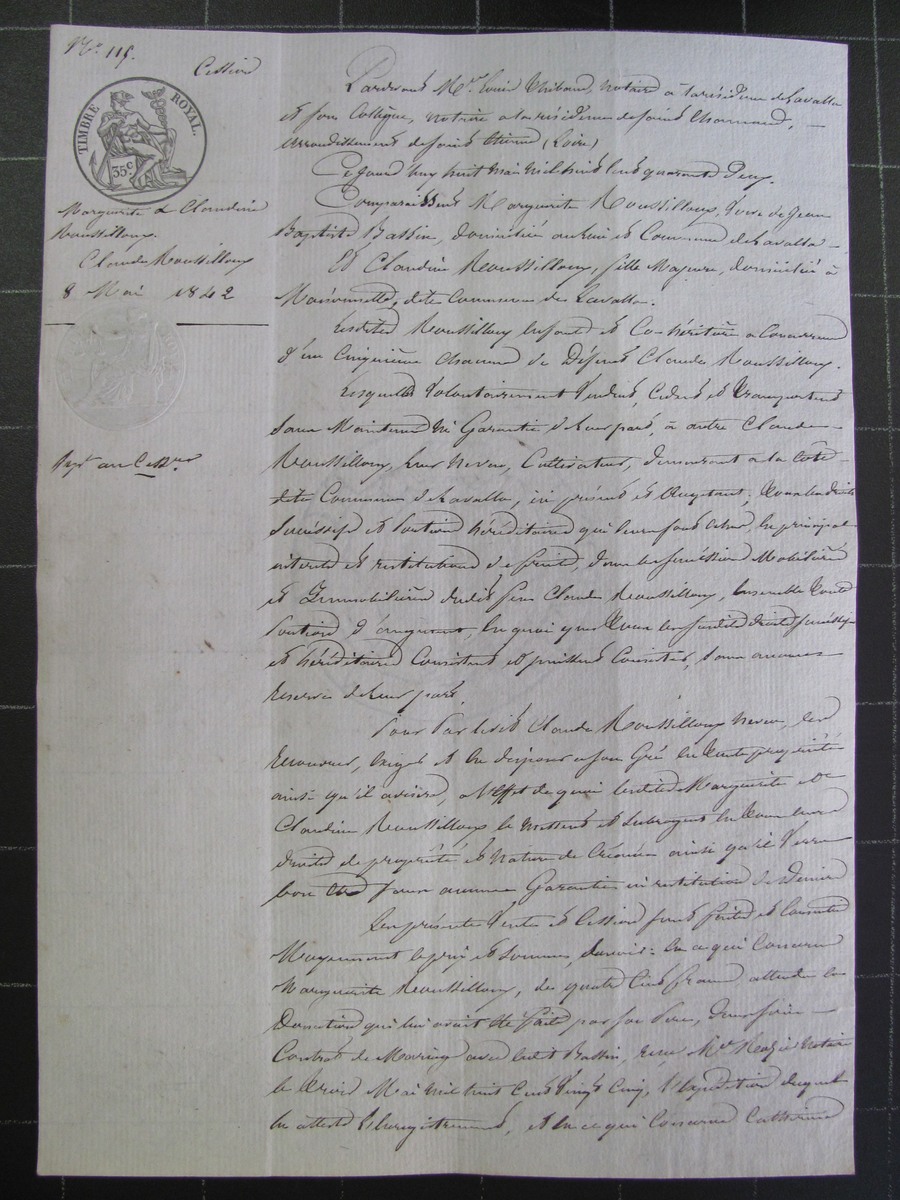 N.º 115.
Cession
TIMBRE ROYAL.
35 c
Marguerite & Claudine
Moussilloux.
Claude Moussilloux
8 Mai 1842
Expon au Cessre
Pardevant Me. Louis Thibaud, notaire à la résidence de Lavalla
et son Collègue, notaire à la résidence de saint Chamond,
arrondissement de saint Etienne (Loire)
Ce jourd'huy huit mai mil huit cent quarante deux.
Comparaissent Marguerite Moussilloux, veuve de Jean
Baptiste Bassin, domiciliée au lieu et Commune de Lavalla
Et Claudine Moussilloux, fille Majeure, domiciliée à
Maisonnette, dite Commune de Lavalla.
Lesdites Moussilloux enfants et Co-héritières à Concurrence
d'un Cinquième chacune de Défunt Claude Moussilloux.
Lesquelles volontairement Vendent, Cèdent et Transportent
sans Maintenue ni Garantie de leur part, à autre Claude
Moussilloux, leur neveu, Cultivateur, demeurant à la Côte
dite Commune de Lavalla, ici présent et acceptant; Tous les droits
successifs et portions héréditaires qui leur sont échus, en principal
intérêts et restitutions de fruits, dans les successions Mobilière
et Immobilière dudit feu Claude Moussilloux, ensemble toute
portion d'augment, en quoi que tous les susdits droits successifs
et héréditaires Consistent et puissent Consister, sans aucune
réserve de leur part.
Pour par ledit Claude Moussilloux neveu, les
recouvrer, exiger et en disposer à son Gré en toute propriété
ainsi qu'il avisera, à l'effet de quoi lesdites Marguerite et
Claudine Moussilloux le mettent et subrogent en tous leurs
droits de propriété et nature de Créance ainsi qu'il verra
bon être sans aucune Garantie ni restitution de deniers
Les présentes Vente et Cession sont faites et consenties
Moyennant le prix et somme, savoir: En ce qui Concerne
Marguerite Moussilloux, de quatre Cents francs attendu la
Donation qui lui avait été faite par son Père, dans son
Contrat de Mariage avec ledit Bassin, reçu Me notaire
le trois Mai mil huit Cent vingt Cinq, l'expédition duquel
en atteste l'Enregistrement, et en ce qui Concerne Catherine